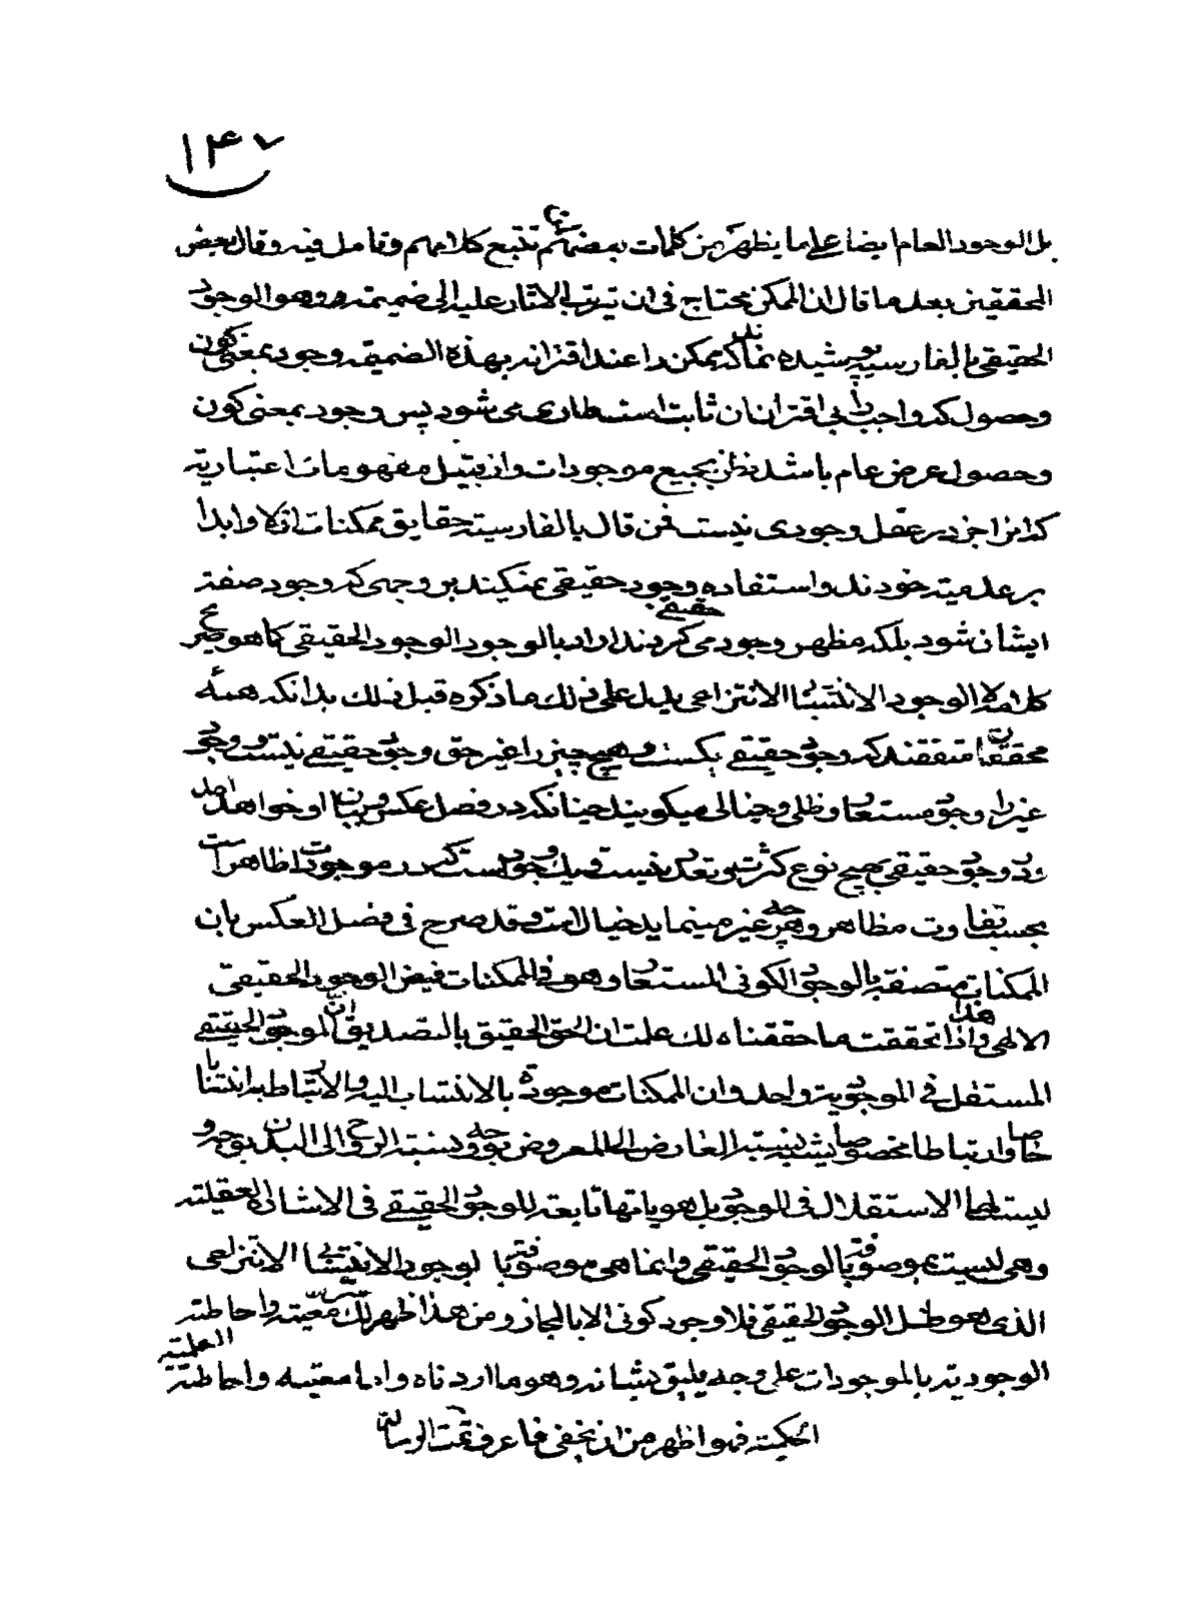 ۱۴۷
بل الوجود العام ايضا على ما يظهر من كلمات بعضهم تتبع كلامهم وتامل فيه وقال بعض
المحققين بعد ما قال ان الممكن يحتاج فى ان يترتب الاثار عليه الى ضميمة وهو الوجود
الحقيقى بالفارسية پوشيده نماند كه ممكن را عند اقترانه بهذه الضميمة وجود بمعنى كون
وحصول كه واجب را بى اقتران ان ثابت است طارى مى شود پس وجود بمعنى كون
وحصول عرض عام باشد نظر بجميع موجودات واز قبيل مفهومات اعتبارية
كه انرا جز در عقل وجودى نيست فمن قال بالفارسية حقايق ممكنات ازلا وابدا
بر عدمية خودند واستفاده وجود حقيقى نميكنند بر وجهى كه وجود صفة
ايشان شود بلكه مظهر وجود حقيقى مى گردند اراد بالوجود الوجود الحقيقى كما هو صريح
كلامه لا الوجود الانتسابى الانتزاعى يدل على ذلك ما ذكره قبل ذلك بدانكه همه
محققان متفقند كه وجود حقيقى يكست و هيچ چيز را غير حق وجود حقيقى نيست و وجود
غير را وجود مستعار وظلى وخيالى ميگويند چنانكه در فصل عكس بيان او خواهد امد
ودر وجود حقيقى بهيچ نوع كثرت وتعدد نيست ويك وجود است كه در موجودات ظاهر است
بحسب تفاوت مظاهر وهرچه غير مينمايد خيال است وقد صرح فى فصل العكس بان
الممكنات متصفة بالوجود الكونى المستعار وهو فى الممكنات فيض الوجود الحقيقى
الالهى هذا واذا تحققت ما حققناه لك علمت ان الحق الحقيق بالتصديق ان الموجود الحقيقى
المستقل فى الموجودية واحد وان الممكنات موجودة بالانتساب اليه والارتباط به انتسابا
خاصا وارتباطا مخصوصا يشبه نسبة العارض الى المعروض بوجه ونسبة الروح الى البدن بوجه و
ليست لها الاستقلال فى الوجود بل هوياتها تابعة للوجود الحقيقى فى الاشارة العقلية
وهى ليست بموصوفة بالوجود الحقيقى وانما هى موصوفة بالوجود الانتسابى الانتزاعى
الذى هو ظل الوجود الحقيقى فلا وجود كونى الا بالمجاز ومن هذا ظهر لك سر معيته واحاطته
الوجودية بالموجودات على وجه يليق بشانه وهو ما اردناه واما معيته واحاطته العلمية
الحكمية فهو اظهر من ان يخفى فاعرف تمت الرسالة